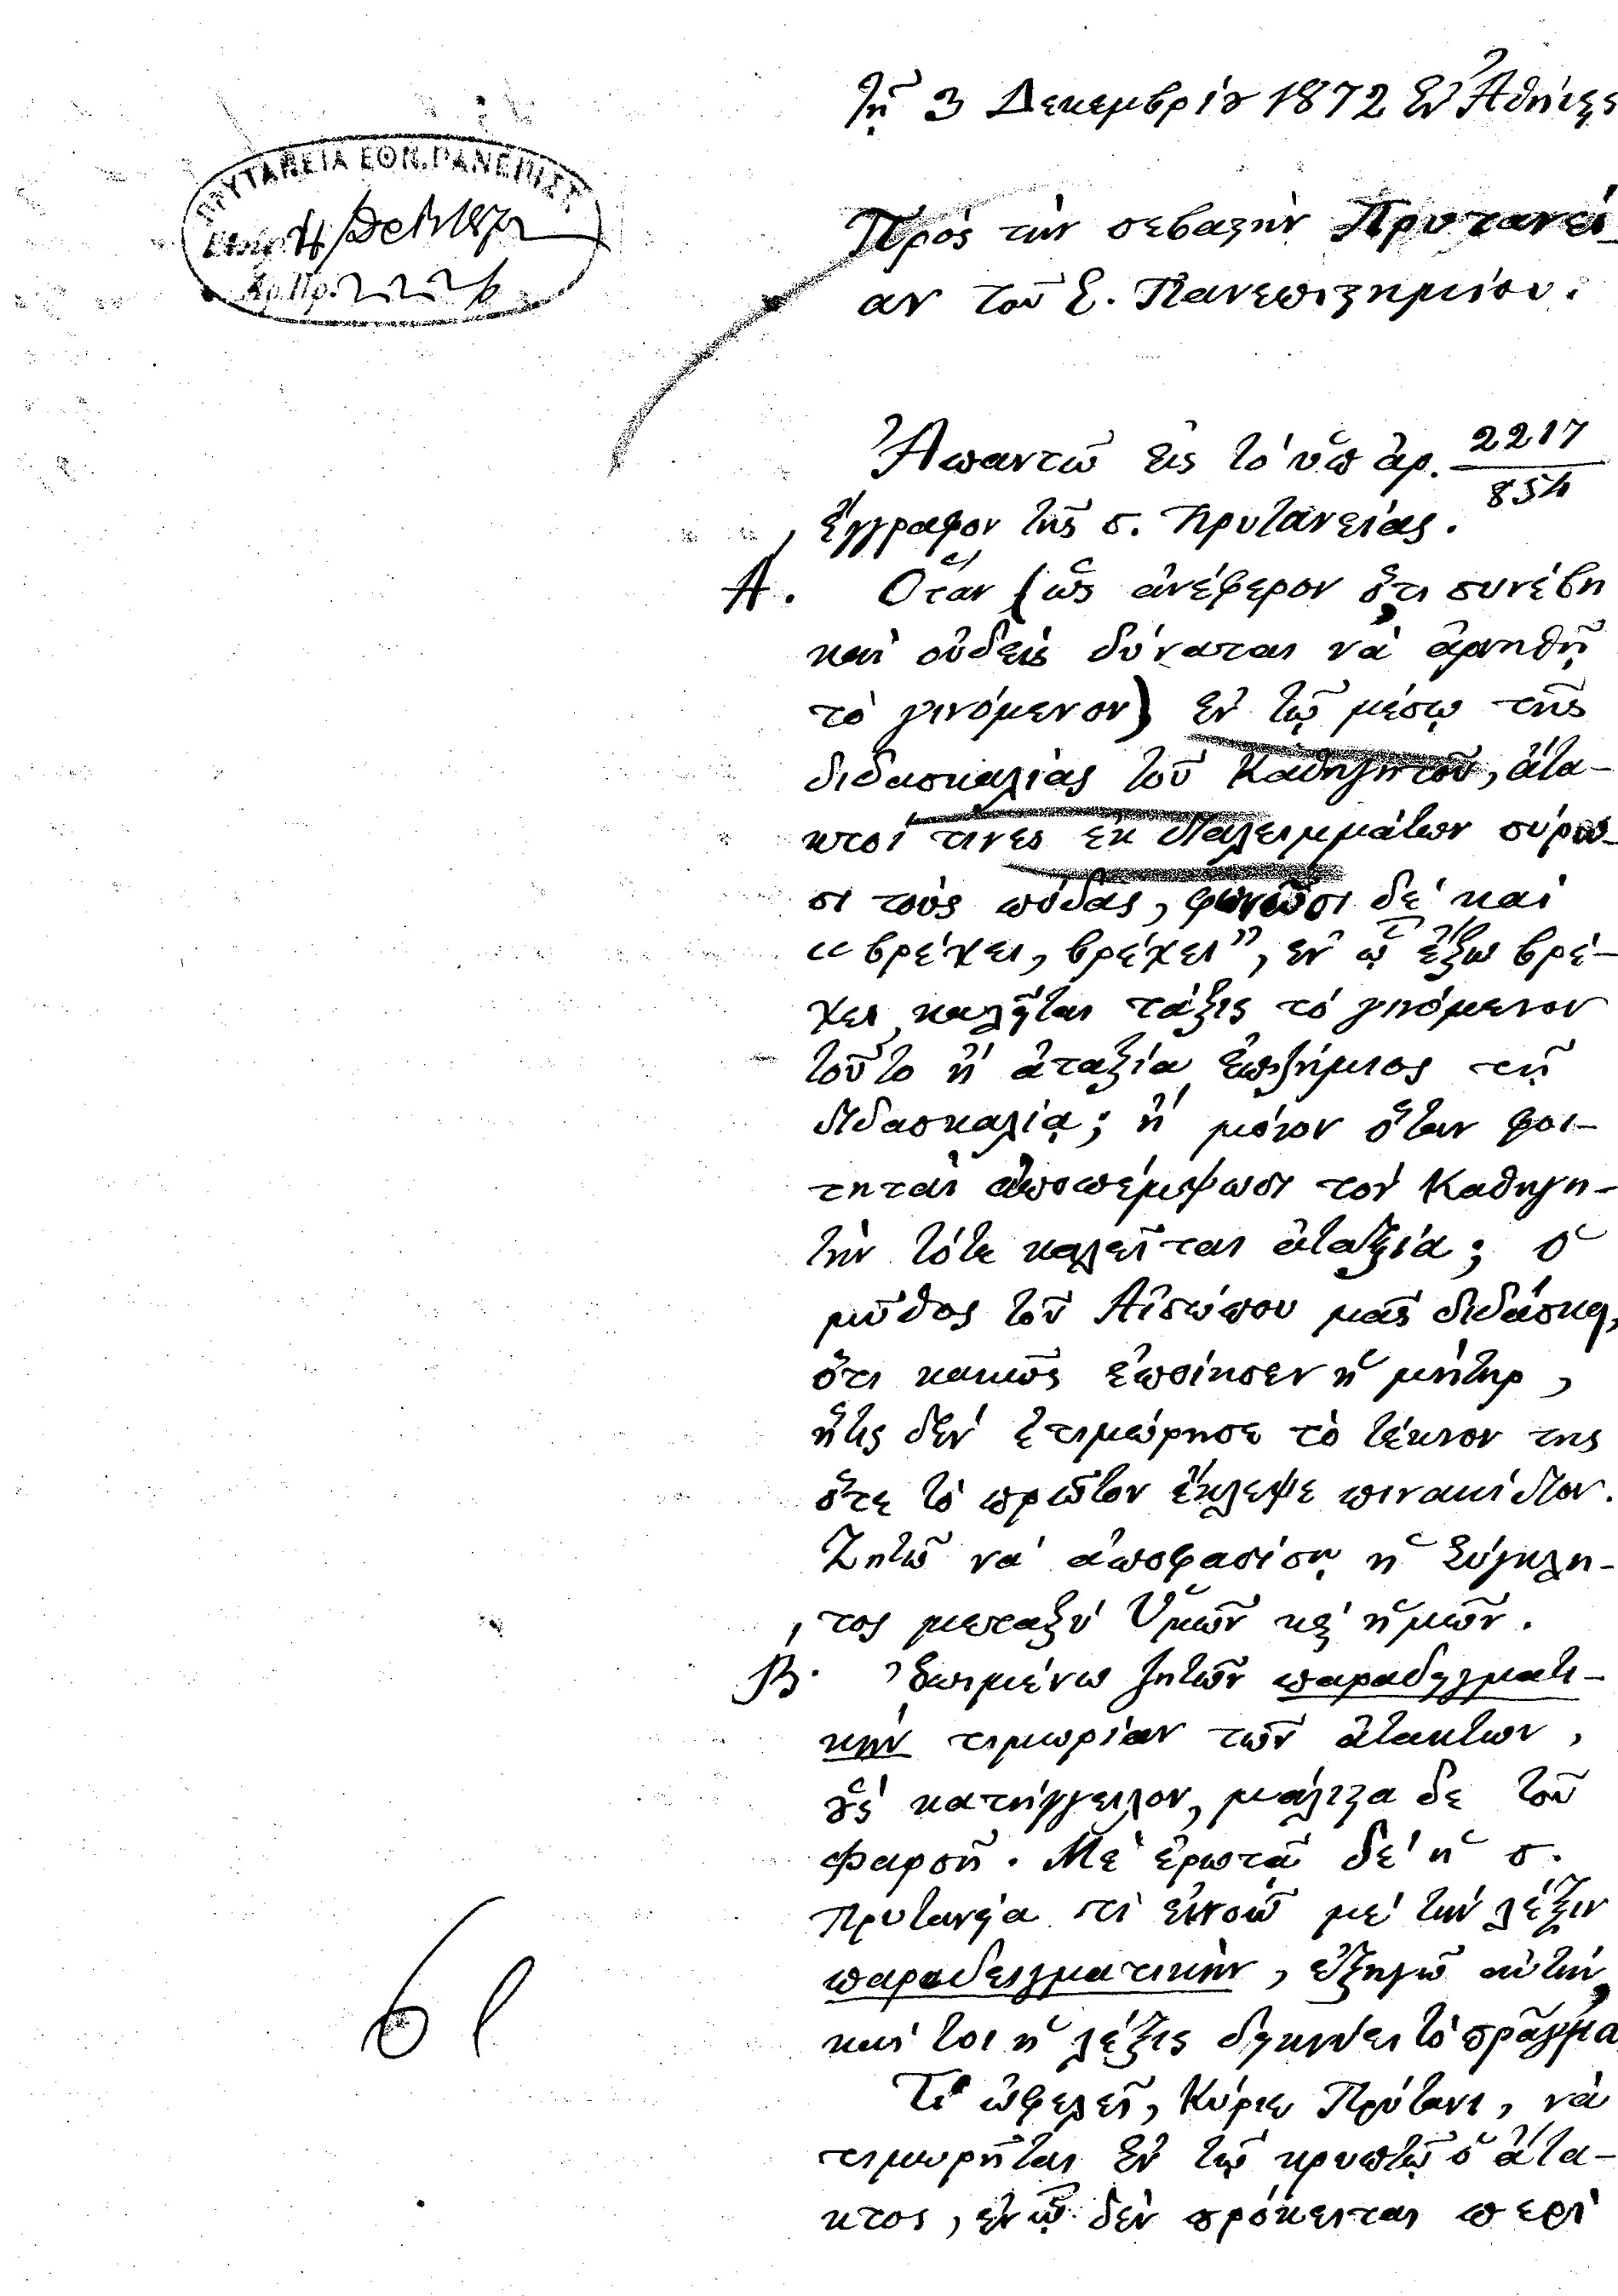 Τῇ 3 Δεκεμβρίου 1872 Ἐν Ἀθήναις
ΠΡΥΤΑΝΕΙΑ ΕΘΝ. ΠΑΝΕΠΙΣΤ.
Ἀρ. Πρ. 2226
Πρὸς τὴν σεβαστὴν Πρυτανεί-
αν τοῦ Ἐ. Πανεπιστημίου.
Ἀπαντῶ εἰς τὸ ὑπ' ἀρ. 2217/854
ἔγγραφον τῆς σ. Πρυτανείας.
Α. Ὅταν (ὡς ἀνέφερον ὅτι συνέβη
καὶ οὐδεὶς δύναται νὰ ἀρνηθῇ
τὸ γινόμενον) ἐν τῷ μέσῳ τῆς
διδασκαλίας τοῦ Καθηγητοῦ, ἄτα-
κτοί τινες ἐκ διαλειμμάτων σύρω-
σι τοὺς πόδας, φωνῶσι δὲ καὶ
"βρέχει, βρέχει", ἐν ᾧ ἔξω βρέ-
χει, καλῆται τάξις τὸ γινόμενον
τοῦτο ἢ ἀταξία ἐπιζήμιος τῇ
διδασκαλίᾳ; ἢ μόνον ὅταν φοι-
τηταὶ ἀποπέμψωσι τὸν Καθηγη-
τὴν τότε καλεῖται ἀταξία; ὁ
μῦθος τοῦ Αἰσώπου μᾶς διδάσκει,
ὅτι κακῶς ἐποίησεν ἡ μήτηρ,
ἥτις δὲν ἐτιμώρησε τὸ τέκνον της
ὅτε τὸ πρῶτον ἔκλεψε πινακίδιον.
Ζητῶ νὰ ἀποφασίσῃ ἡ Σύγκλη-
τος μεταξὺ Ὑμῶν καὶ ἡμῶν.
Β. Ἐπιμένω ζητῶν παραδειγματι-
κὴν τιμωρίαν τῶν ἀτάκτων,
οὓς κατήγγειλον, μάλιστα δὲ τοῦ
Φαρσῆ. Μὲ ἐρωτᾷ δὲ ἡ σ.
Πρυτανεία τί ἐννοῶ μὲ τὴν λέξιν
παραδειγματικήν, ἐξηγῶ αὐτήν,
καί τοι ἡ λέξις δεικνύει τὸ πρᾶγμα
Τί ὠφελεῖ, Κύριε Πρύτανι, νὰ
τιμωρῆται ἐν τῷ κρυπτῷ ὁ ἄτα-
κτος, ἐν ᾧ δὲν πρόκειται περὶ